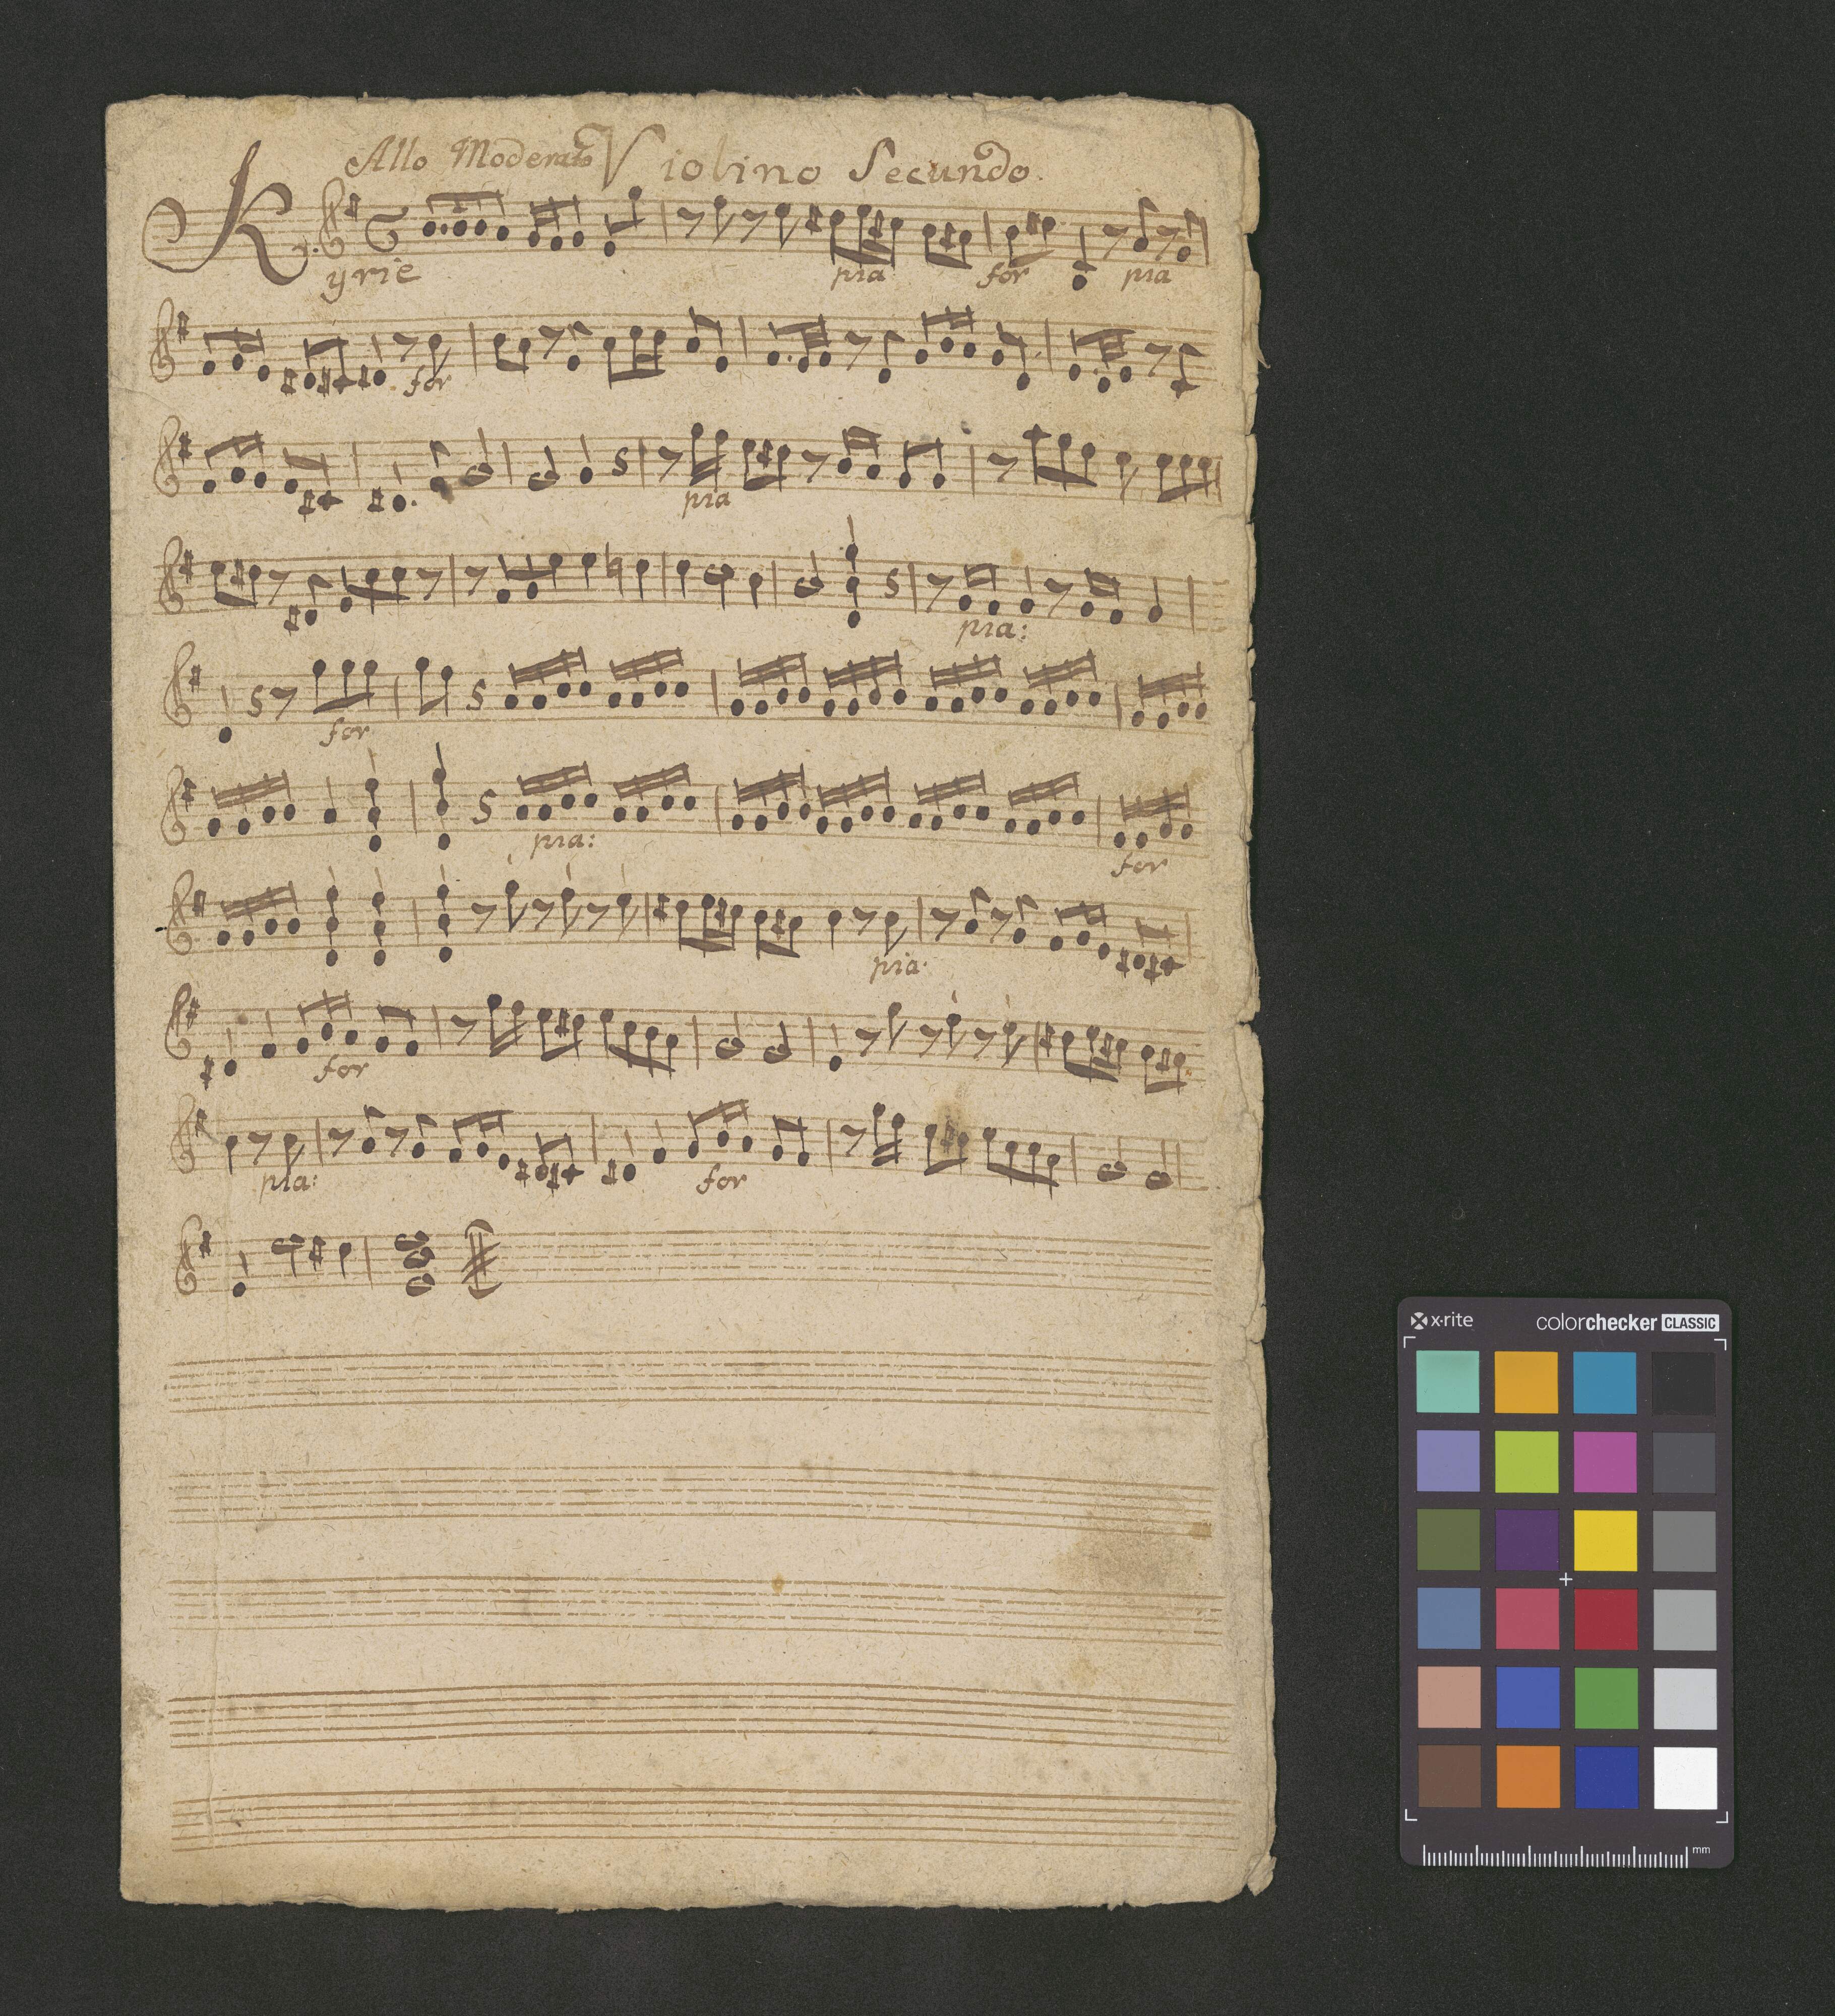 Allo Moderato Violino Secundo.
Kyrie
pia for pia
for
pia
pia:
for
pia:
for
pia:
for
pia: for
x-rite colorchecker CLASSIC
mm